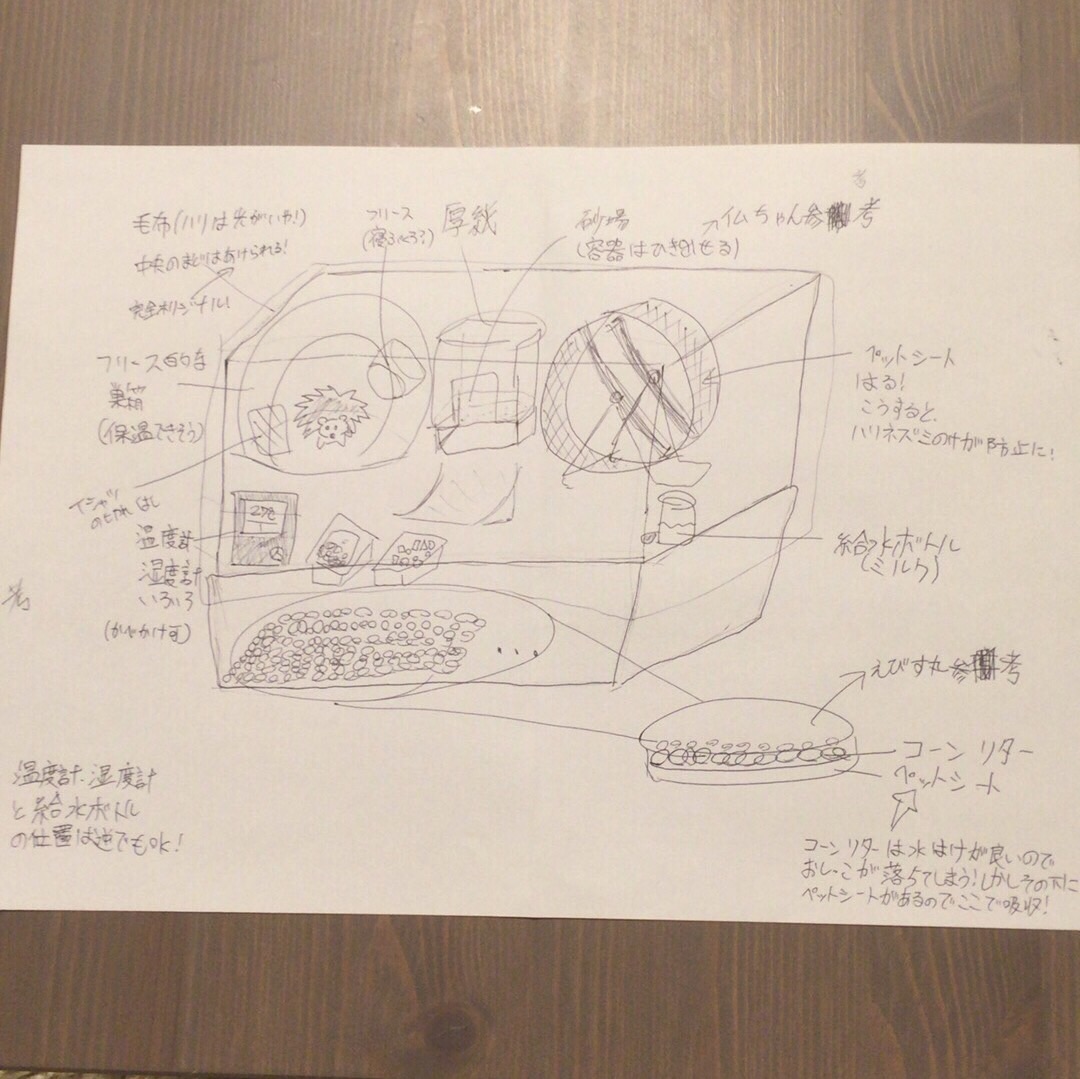 毛布(ハリは光がいや!)
中央のまどはあけられる!
完全オリジナル!
フリース的な
巣箱
(保温できそう)
Tシャツ
のきれはし
温度計
湿度計
いろいろ
(かべかけ可)
フリース
(寝ぶくろ?)
厚紙
砂場
(容器はひき出せる)
イムちゃん参考
考
ペットシート
はる!
こうすると、
ハリネズミのケガ防止に!
27℃
給水ボトル
(ミルク)
えびす丸参考
コーンリター
ペットシート
コーンリターは水はけが良いので
おしっこが落ちてしまう!しかしその下に
ペットシートがあるのでここで吸収!
考
温度計、湿度計
と給水ボトル
の位置は逆でもOK!